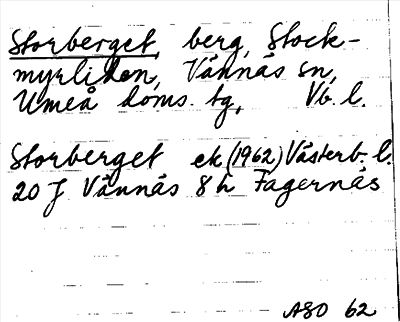 Storberget, berg, Stock-
myrliden, Vännäs sn,
Umeå doms. tg, Vb. l.
Storberget ek (1962) Västerb. l.
20 J Vännäs 8 h Fagernäs
ASO 62